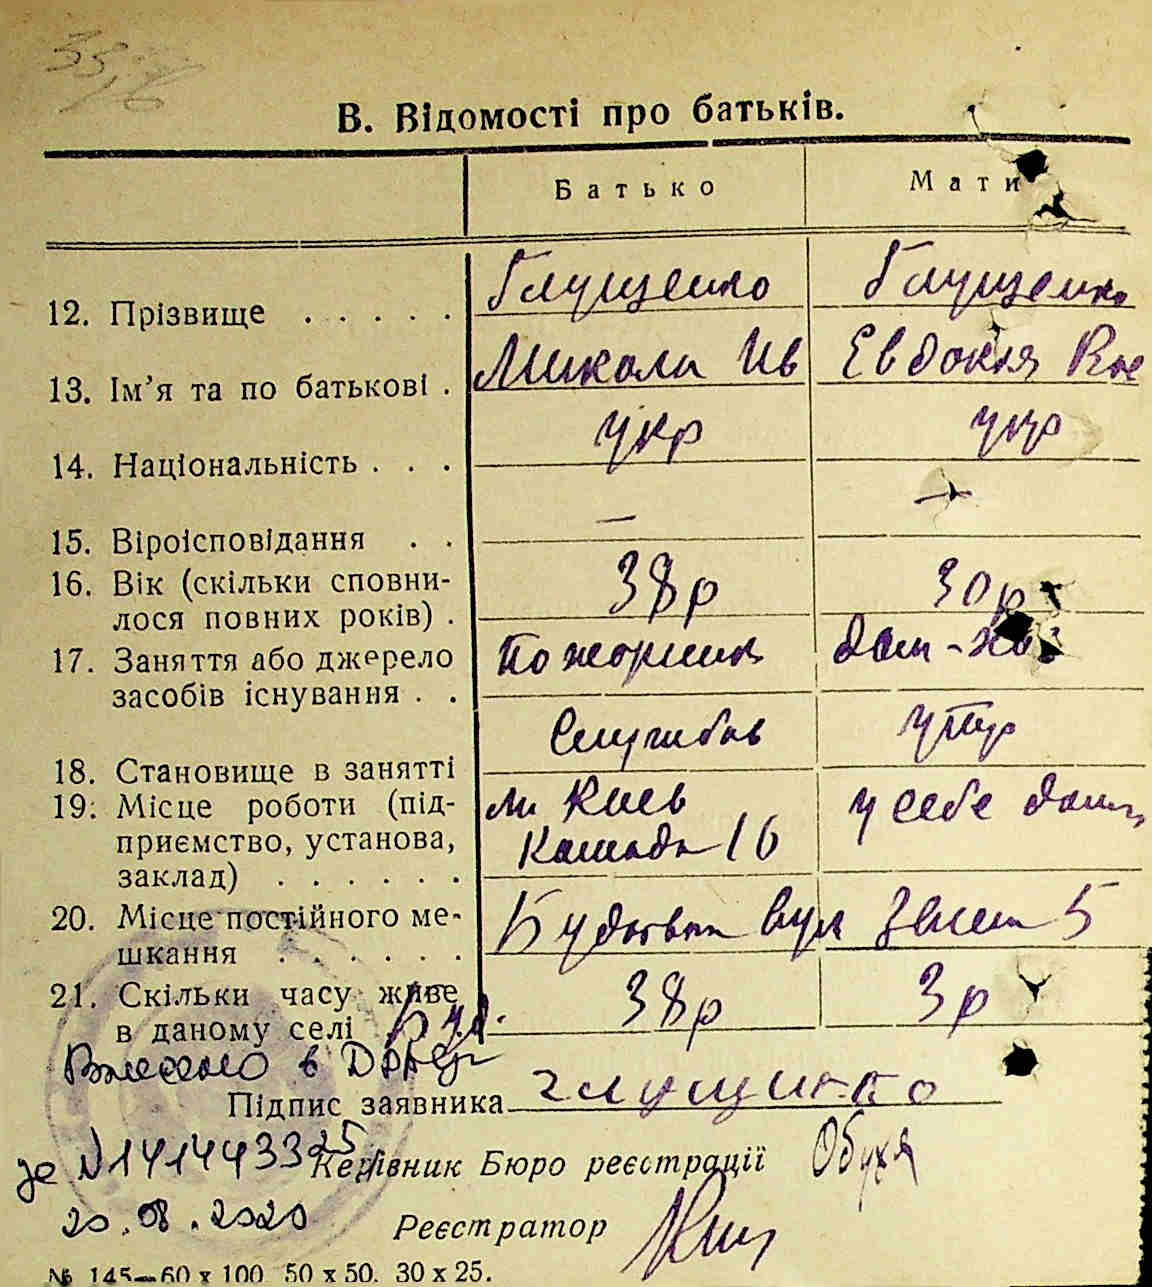 В. Відомості про батьків.
Батько Мати
12. Прізвище . . . . . Глущенко Глущенко
13. Ім'я та по батькові . Микола Ив Евдокія Вас
14. Національність . . . укр укр
15. Віроісповідання . . — —
16. Вік (скільки сповни-
лося повних років) . 38р 30р
17. Заняття або джерело Пожарник дом-хоз
засобів існування . .
18. Становище в занятті Службов утр
19. Місце роботи (під- м Киев у себе дома
приємство, установа, Команда 16
заклад) . . . . . .
20. Місце постійного ме- вул 5
шкання . . . . . .
21. Скільки часу живе 38р 3р
в даному селі Буд.
Внесено в ДРАЦС
Підпис заявника глущинко
за №1414433
Керівник Бюро реєстрації
20.08.2020 Реєстратор
№ 145—60 х 100 50 х 50. 30 х 25.